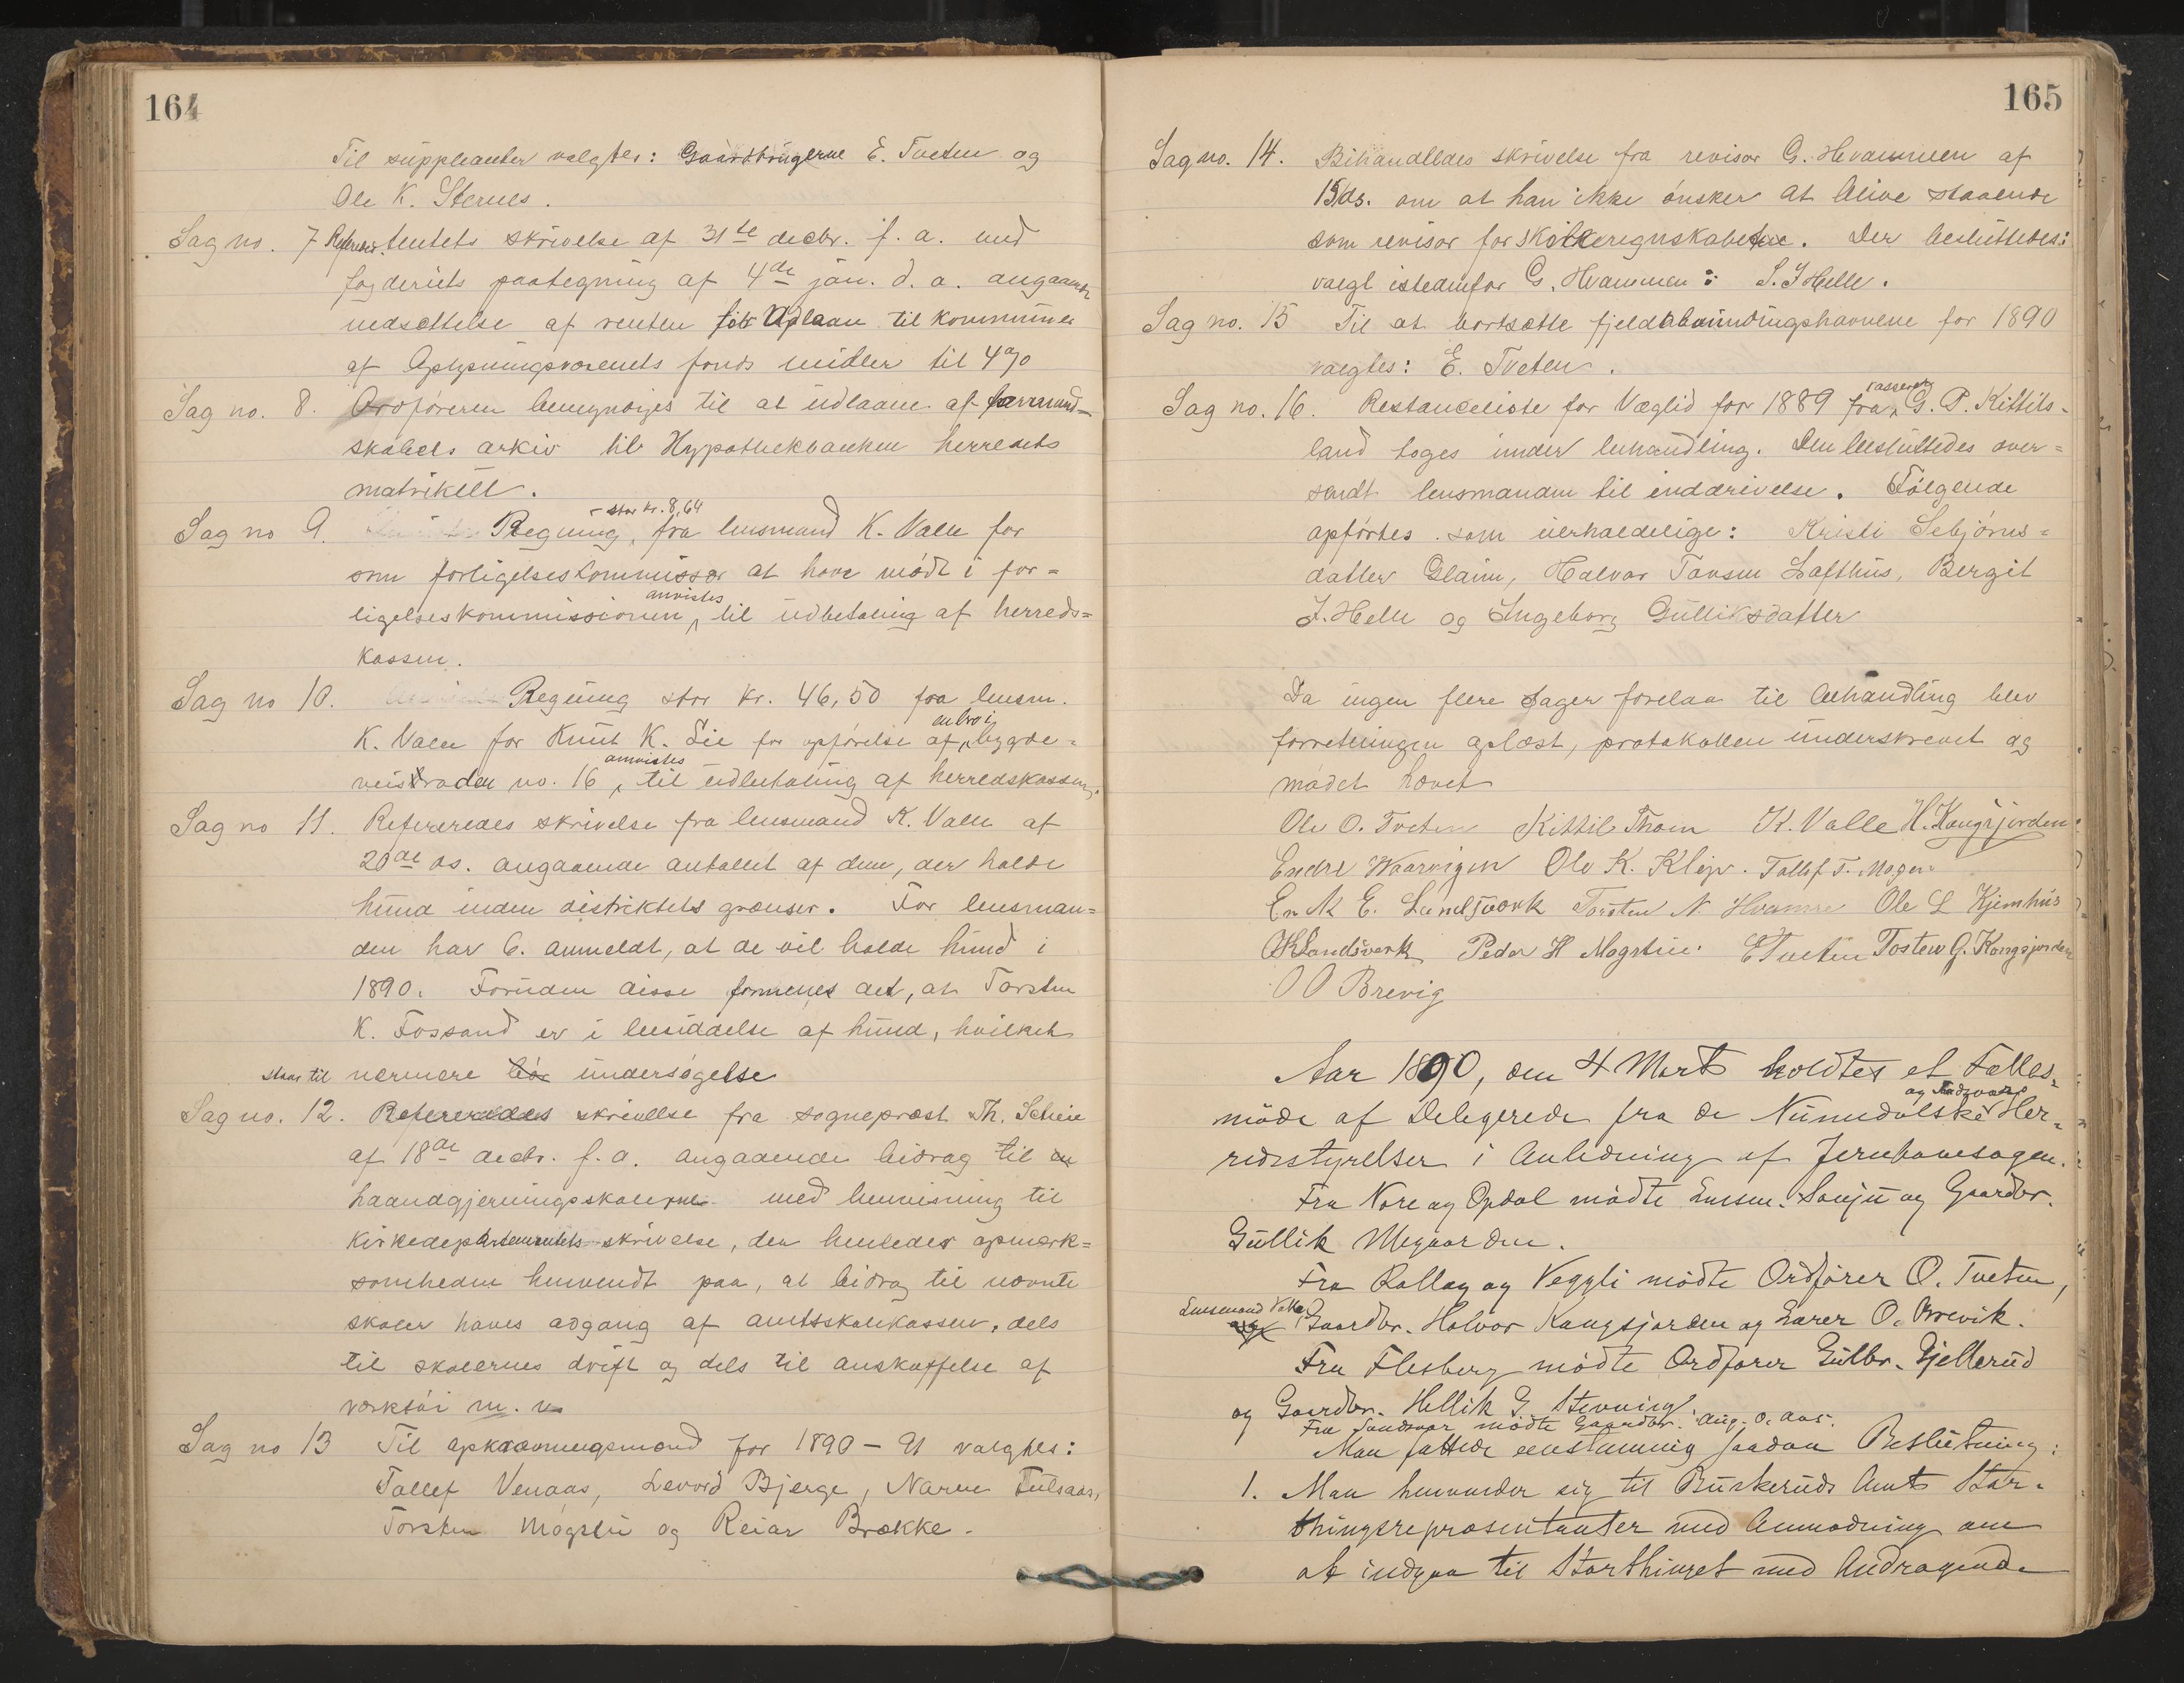 164
Til suppleanter valgtes: Gaardbrugerne E. Tveten og
Ole K. Sternes.
Sag no. 7 Refereredes skrivelse af 31te decbr. f. a. med
fogderiets paategning af 4de jan. d. a. angaaende
nedsættelse af renten for Udlaan til kommuner
af Oplysningsvæsenets fonds midler til 4%
Sag no. 8. Ordføreren bemyndiges til at udlaane af formand=
skabets arkiv til Hypothekbanken herredets
matrikul.
- stor kr. 8,64
Sag no 9. Regning, fra lensmand K. Valle for
som forligelseskommissær at have mødt i for=
anvistes
ligelseskommissionen, til udbetaling af herreds=
kassen.
Sag no 10. Regning stor kr. 46,50 fra lensm.
en bro i
K. Valle for Knut K. Lie for opførelse af bygde=
anvistes
veis roden no. 16, til udbetaling af herredskassen.
Sag no 11. Refereredes skrivelse fra lensmand K. Valle af
20de ds. angaaende antallet af dem, der holde
hund inden distriktets grænser. For lensman=
den har 6. anmeldt, at de vil holde hund i
1890. Foruden disse formenes det, at Torsten
K. Fossand er i besiddelse af hund, hvilket
staar til nærmere bør undersøgelse
Sag no. 12. Refereredes skrivelse fra sognepræst Th. Scheie
af 18de decbr. f. a. angaaende bidrag til
haandgjerningsskolerne med henvisning til
Kirkedepartementets skrivelse, der henleder opmærk=
somheden henvendt paa, at bidrag til nævnte
skoler haves adgang af amtsskolekassen, dels
til skolernes drift og dels til anskaffelse af
værktøi m. v.
Sag no 13 Til opkrævningsmænd for 1890-91 valgtes:
Tollef Venaas, Levord Bjerge, Narve Fulsaas,
Torsten Mogstu og Reiar Brække.
165
Sag no. 14. Behandledes skrivelse fra revisor G. Hvammen af
15/ds. om at han ikke ønsker at blive staaende
som revisor for skoleregnskaberne. Der besluttedes:
valgt istedenfor G. Hvammen: S. J Helle.
Sag no. 15 Til at bortsætte fjeldalmindingshavnene for 1890
valgtes: E. Tveten.
kasserer
Sag no. 16. Restanceliste for Væglid for 1889 fra G. P. Kittils-
land toges under behandling. Den besluttedes over=
sendt lensmanden til inddrivelse. Følgende
opførtes som uerholdelige: Kristi Sebjørns=
datter Glaim, Halvor Tovsen Lofthus, Bergit
J. Helle og Ingeborg Gulliksdatter
Da ingen flere sager forelaa til behandling blev
forretningen oplæst, protokollen underskrevet og
mødet hævet
Ole O. Tveten Kittil Thoen K. Valle H. Kongsjorden
Endre Waarvigen Ole K. Klep. Tollef T. Mogen
E. Landsverk Torsten N. Hvamme Ole L Kjemhus
OKLandsverk Peder H Mogstue. ETveten Tosten G. Kongsjorden
O O Brevig
Aar 1890, den 4 Marts holdtes et Fælles-
og Sandsvær
møde af Delegerede fra de Numedalske Her-
redsstyrelser i Anledning af Jernbanesagen.
Fra Nore og Opdal mødte Lensm. Sonju og Gaardbr.
Gullik Mygaarden.
Fra Rollag og Veggli mødte Ordfører O. Tveten,
Lensmand Valle,
og Gaardbr. Halvor Kongsjorden og Lærer O. Brevik.
Fra Flesberg mødte Ordfører Gulbr. Gjellerud
og Gaardbr. Hellik G. Stevning.
Fra Sandsvær mødte Gaardbr. Aug. O. Aas.
Man fattede eenstemmig saadan Beslutning:
1. Man henvender sig til Buskeruds Amts Stor-
thingsrepræsentanter med Anmodning om
at indgaa til Storthinget med Andragende